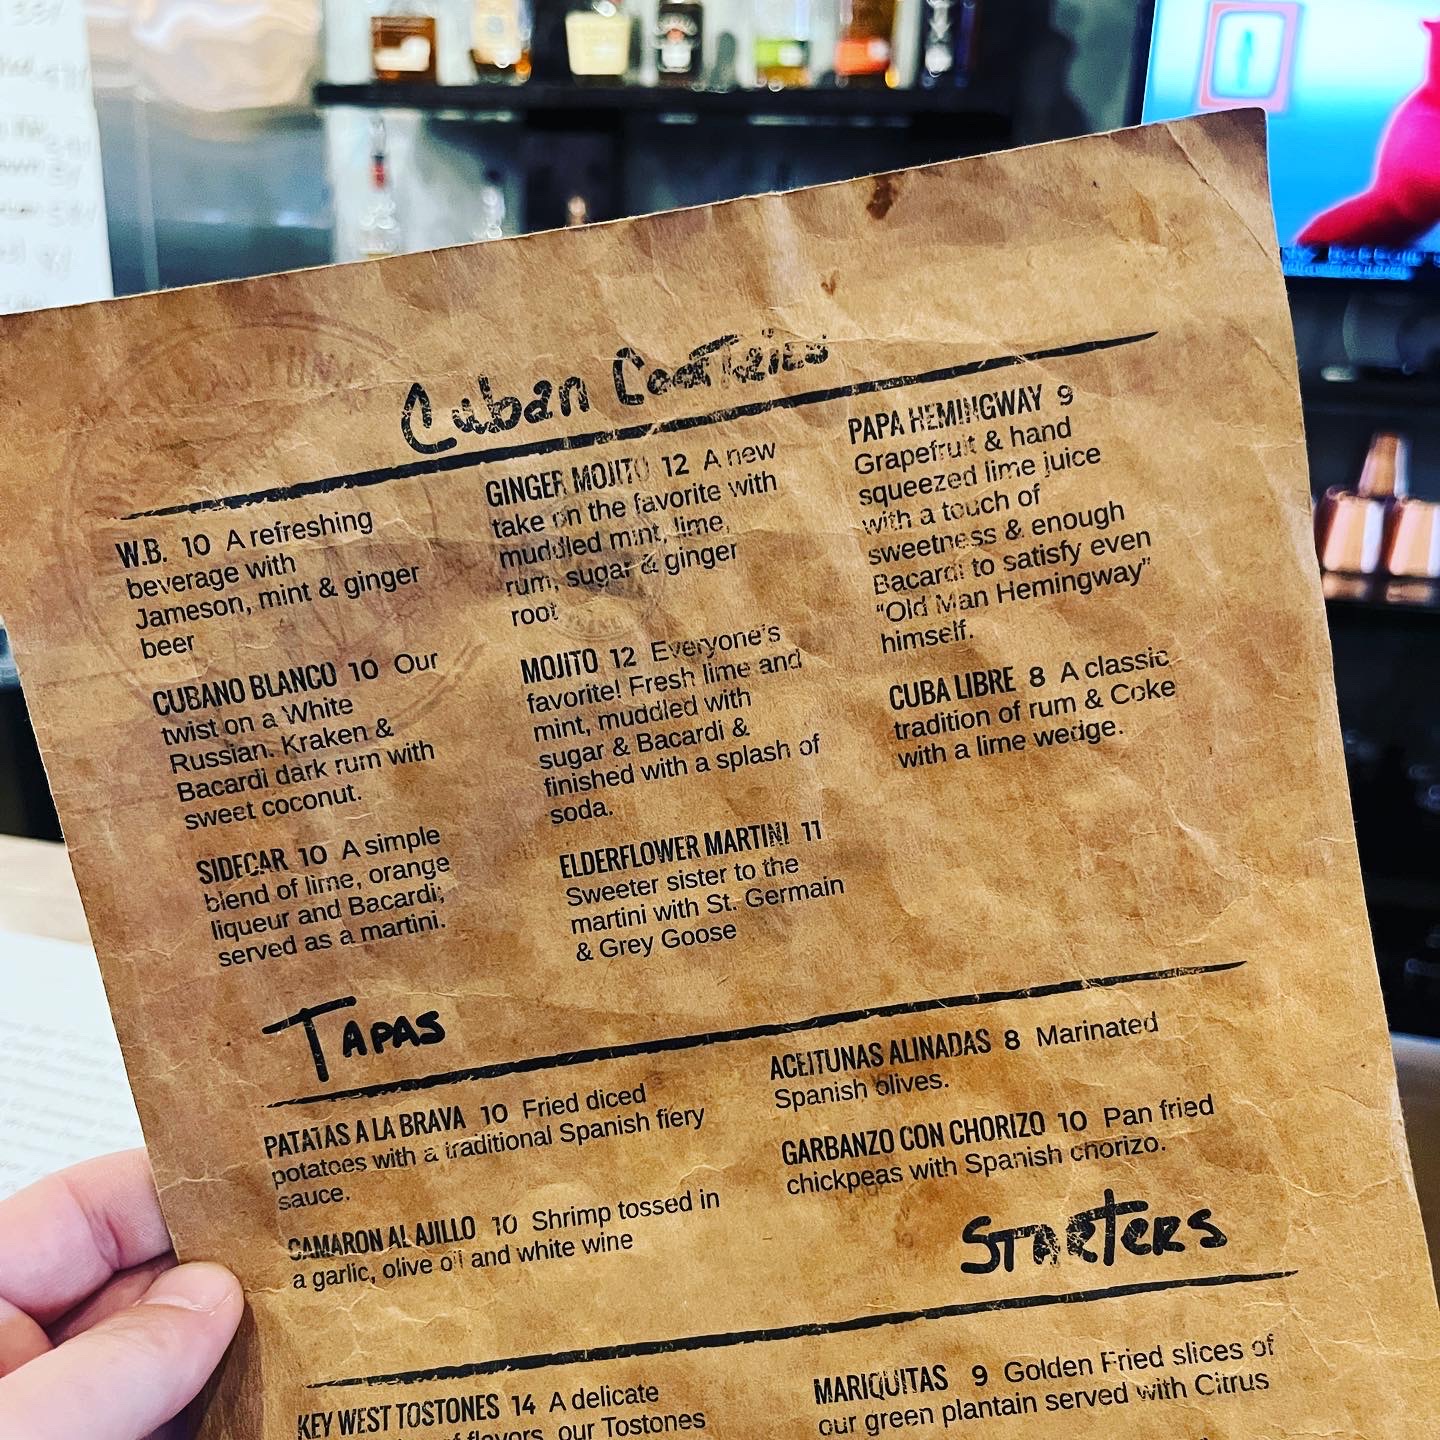 Cuban Cocktails
W.B. 10 A refreshing
beverage with
Jameson, mint & ginger
beer
CUBANO BLANCO 10 Our
twist on a White
Russian. Kraken &
Bacardi dark rum with
sweet coconut.
SIDECAR 10 A simple
blend of lime, orange
liqueur and Bacardi;
served as a martini.
GINGER MOJITO 12 A new
take on the favorite with
muddled mint, lime,
rum, sugar & ginger
root
MOJITO 12 Everyone's
favorite! Fresh lime and
mint, muddled with
sugar & Bacardi &
finished with a splash of
soda.
ELDERFLOWER MARTINI 11
Sweeter sister to the
martini with St. Germain
& Grey Goose
PAPA HEMINGWAY 9
Grapefruit & hand
squeezed lime juice
with a touch of
sweetness & enough
Bacardi to satisfy even
"Old Man Hemingway"
himself.
CUBA LIBRE 8 A classic
tradition of rum & Coke
with a lime wedge.
TAPAS
PATATAS A LA BRAVA 10 Fried diced
potatoes with a traditional Spanish fiery
sauce.
CAMARON AL AJILLO 10 Shrimp tossed in
a garlic, olive oil and white wine
ACEITUNAS ALINADAS 8 Marinated
Spanish olives.
GARBANZO CON CHORIZO 10 Pan fried
chickpeas with Spanish chorizo.
STARTERS
KEY WEST TOSTONES 14 A delicate
of flavors, our Tostones
MARIQUITAS 9 Golden Fried slices of
our green plantain served with Citrus